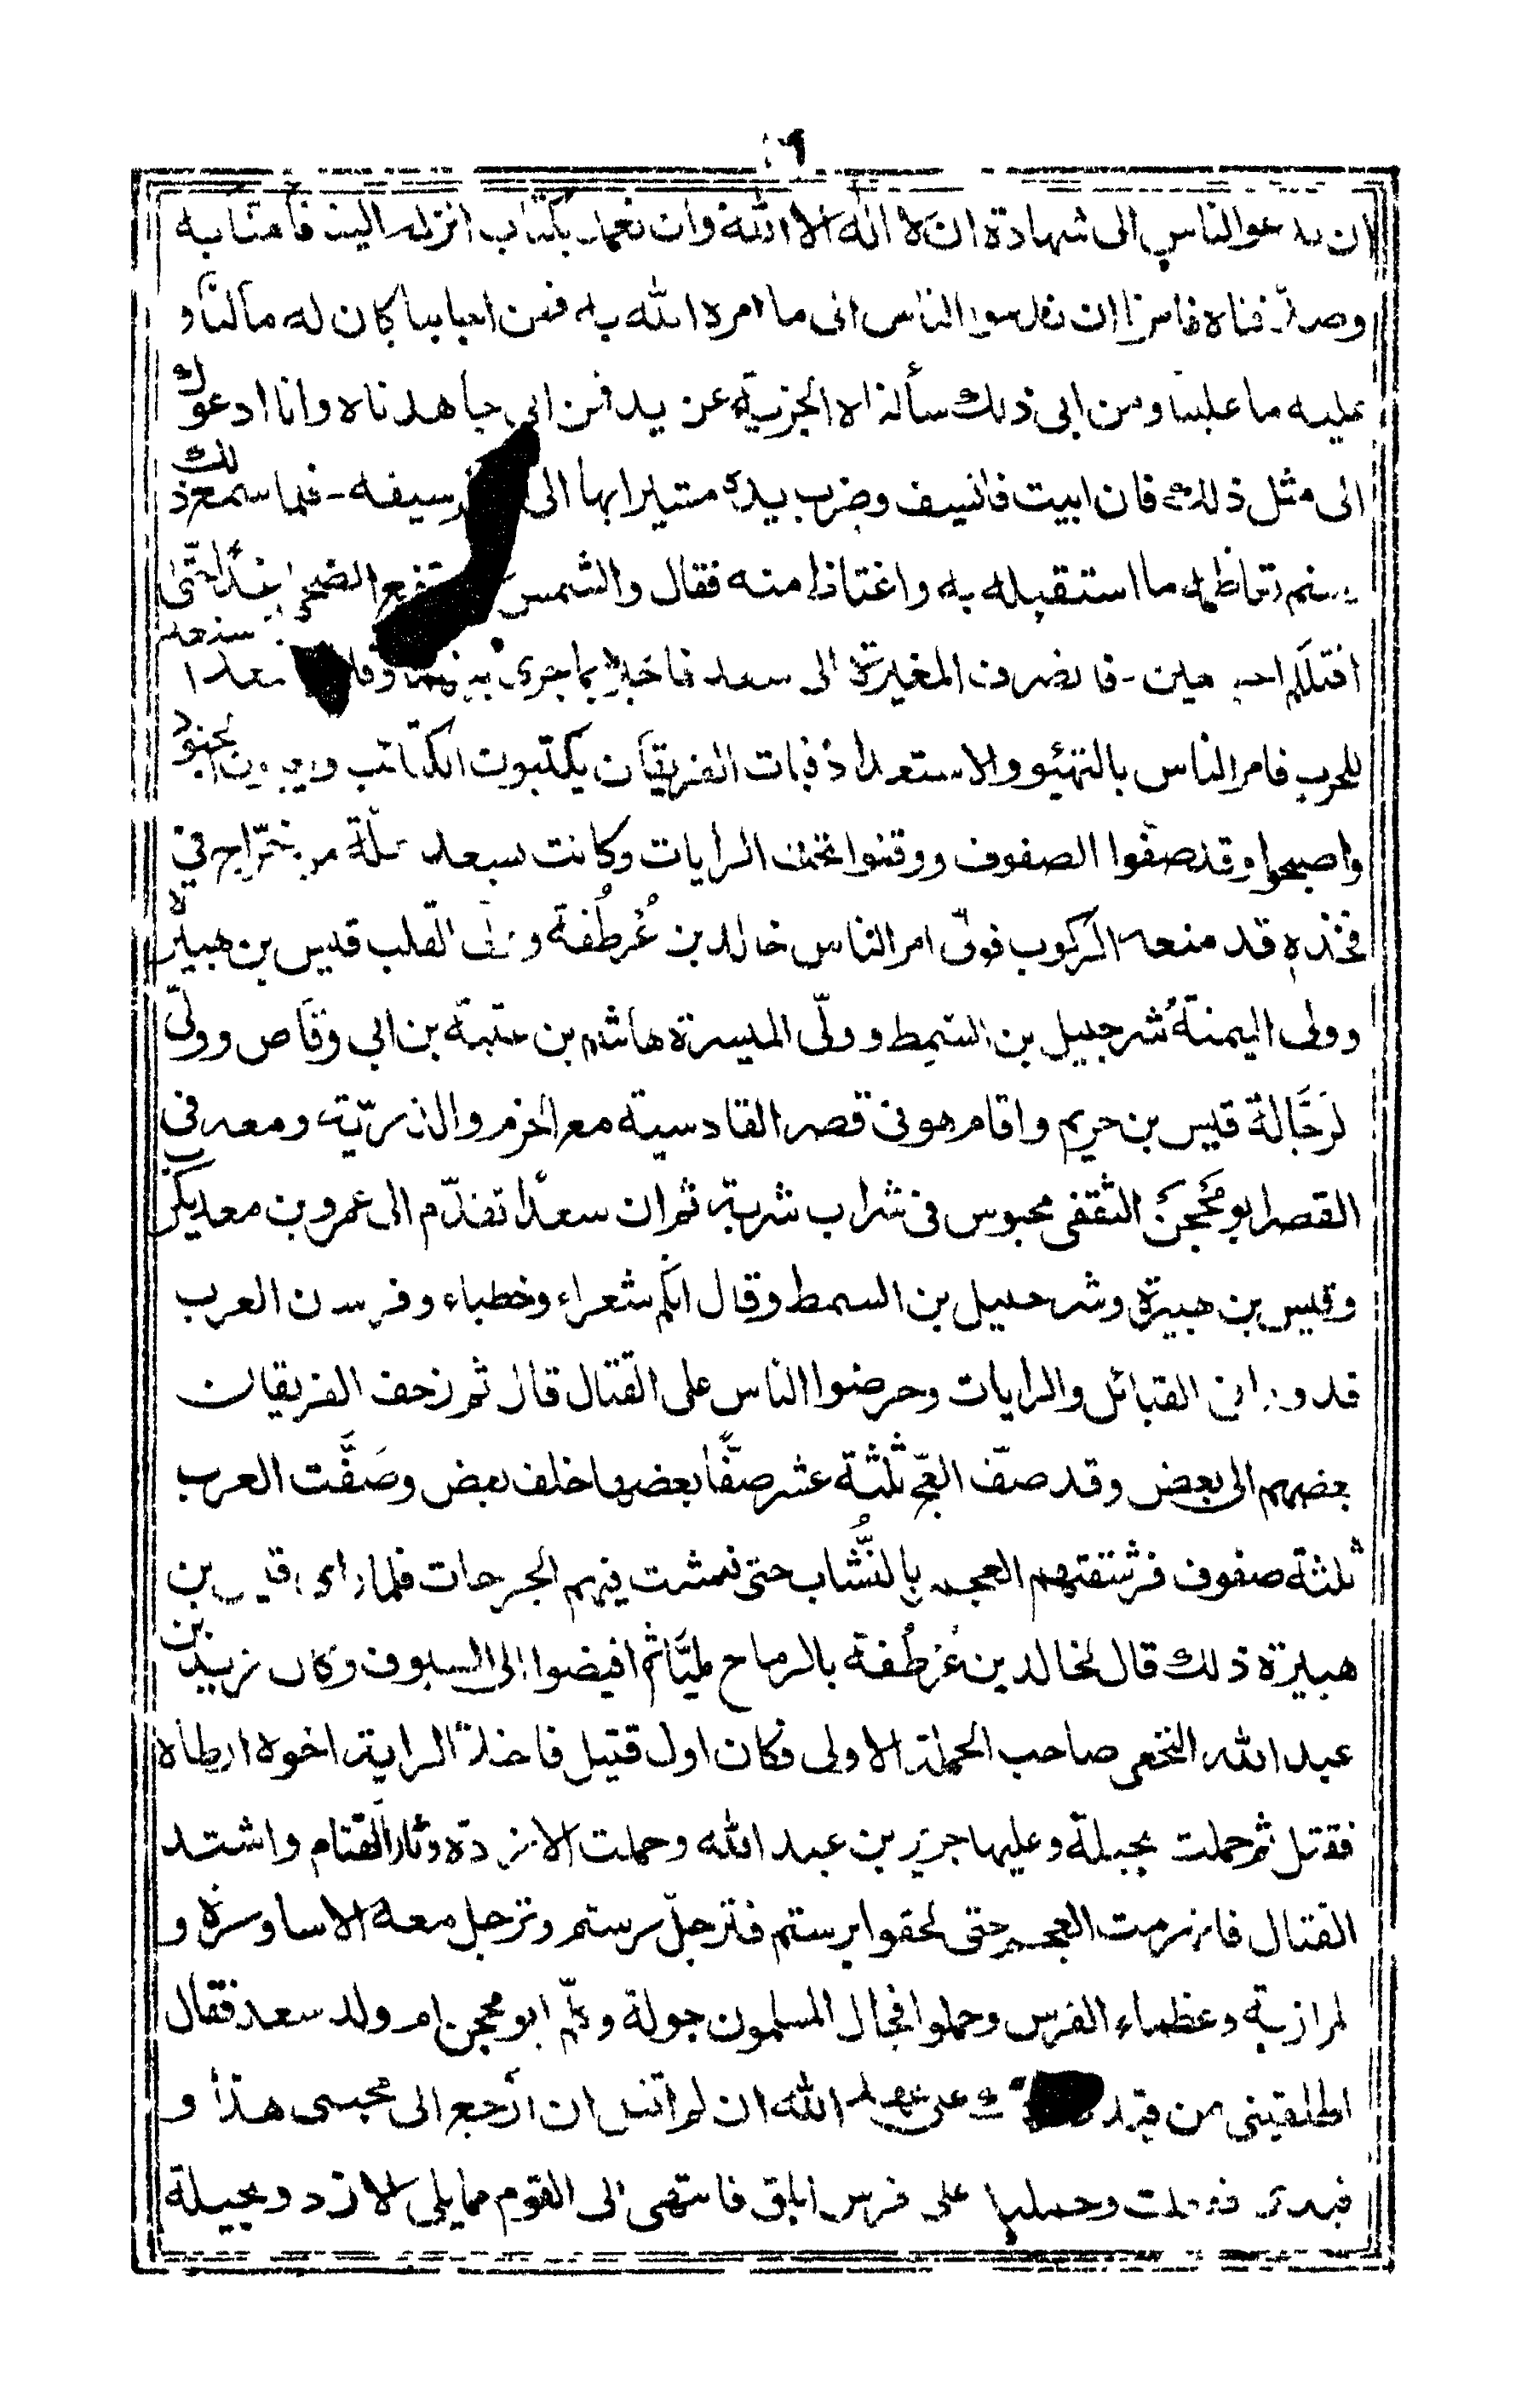 ان ندعو الناس الى شهادة ان لا اله الا الله وان نعمل بكتاب انزله الينا فآمنّا به
وصدّقناه فامرنا ان ندعو الناس الى ما امره الله به فمن اجابنا كان له ما لنا و
عليه ما علينا ومن ابى ذلك سألناه الجزية عن يد فمن ابى جاهدناه وانا ادعوك
الى مثل ذلك فان ابيت فالسيف وضرب بيده مشيرا بها الى سيفه - فلما سمع ذلك
رستم تعاظمه ما استقبله به واغتاظ منه فقال والشمس الضحى غدًا حتّى
اقتلكم اجمعين - فانصرف المغيرة الى سعد فاخبره بما جرى بينهما وقال استعد
للحرب فامر الناس بالتهيئو والاستعداد فبات الفريقان يكتبون الكتائب و الجنود
واصبحوا وقد صفّوا الصفوف ووقفوا تحت الرايات وكانت بسعد علّة من خرّاج في
فخذه قد منعه الركوب فولّى امر الناس خالد بن عُرطُفة و القلب قيس بن هبيرة
وولى الميمنة شرجبيل بن السّمط وولّى الميسرة هاشم بن عتبة بن ابي وقّاص وولّى
لرَجّالة قيس بن حريم واقام هو في قصر القادسية مع الحرم والذرّيّة ومعه في
القصر ابو مُحجَن الثقفى محبوس فى شراب شربه ثم ان سعدًا تقدّم الى عمرو بن معديكرب
وقيس بن هبيرة وشرحبيل بن السمط وقال انّكم شعراء وخطباء وفرسان العرب
فدوروا فى القبائل والرايات وحرضوا الناس على القتال قال ثم زحف الفريقان
بعضهم الى بعض وقد صفّ العجم ثلثة عشر صفًّا بعضها خلف بعض وصَفَّت العرب
ثلثة صفوف فرشقتهم العجم بالنُّشّاب حتى فشت فيهم الجرحات فلما راى قيس بن
هبيرة ذلك قال لخالد بن عُرطُفة بالرماح مليّا ثم افيضوا الى السيوف وكان زيد بن
عبد الله النخعى صاحب الحملة الاولى فكان اول قتيل فاخذ الراية اخوه ارطاة
فقتل ثم حملت بجيلة وعليها جرير بن عبد الله وحملت الازد وثار القتام واشتد
القتال فانهزمت العجم حتى لحقوا برستم فترجّل رستم وترجل معه الاساورة و
لمرازبة وعظماء الفرس وحملوا فجال المسلمون جولة وكلّم ابو محجن ام ولد سعد فقال
اطلقينى من قيد على عهد الله ان لم اقتل ان ارجع الى محبسى هذا و
قيدى ففعلت وحملها على فرس ابلق فانتهى الى القوم مما يلى الازد وبجيلة